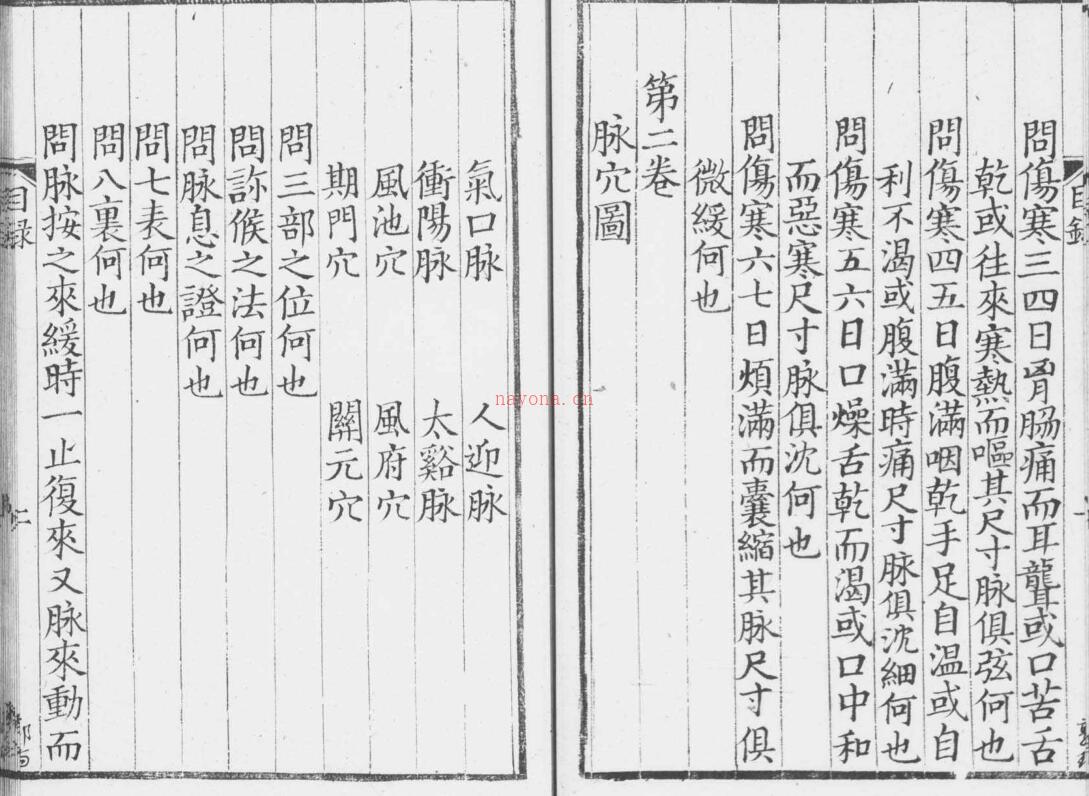 問傷寒三四日胷脇痛而耳聾或口苦舌
乾或往來寒熱而嘔其尺寸脉俱弦何也
問傷寒四五日腹滿咽乾手足自温或自
利不渴或腹滿時痛尺寸脉俱沈細何也
問傷寒五六日口燥舌乾而渴或口中和
而惡寒尺寸脉俱沈何也
問傷寒六七日煩滿而囊縮其脉尺寸俱
微緩何也
第二卷
脉穴圖
氣口脉 人迎脉
衝陽脉 太谿脉
風池穴 風府穴
期門穴 關元穴
問三部之位何也
問診候之法何也
問脉息之證何也
問七表何也
問八裏何也
問脉按之來緩時一止復來又脉來動而
目録
二
nayona.cn